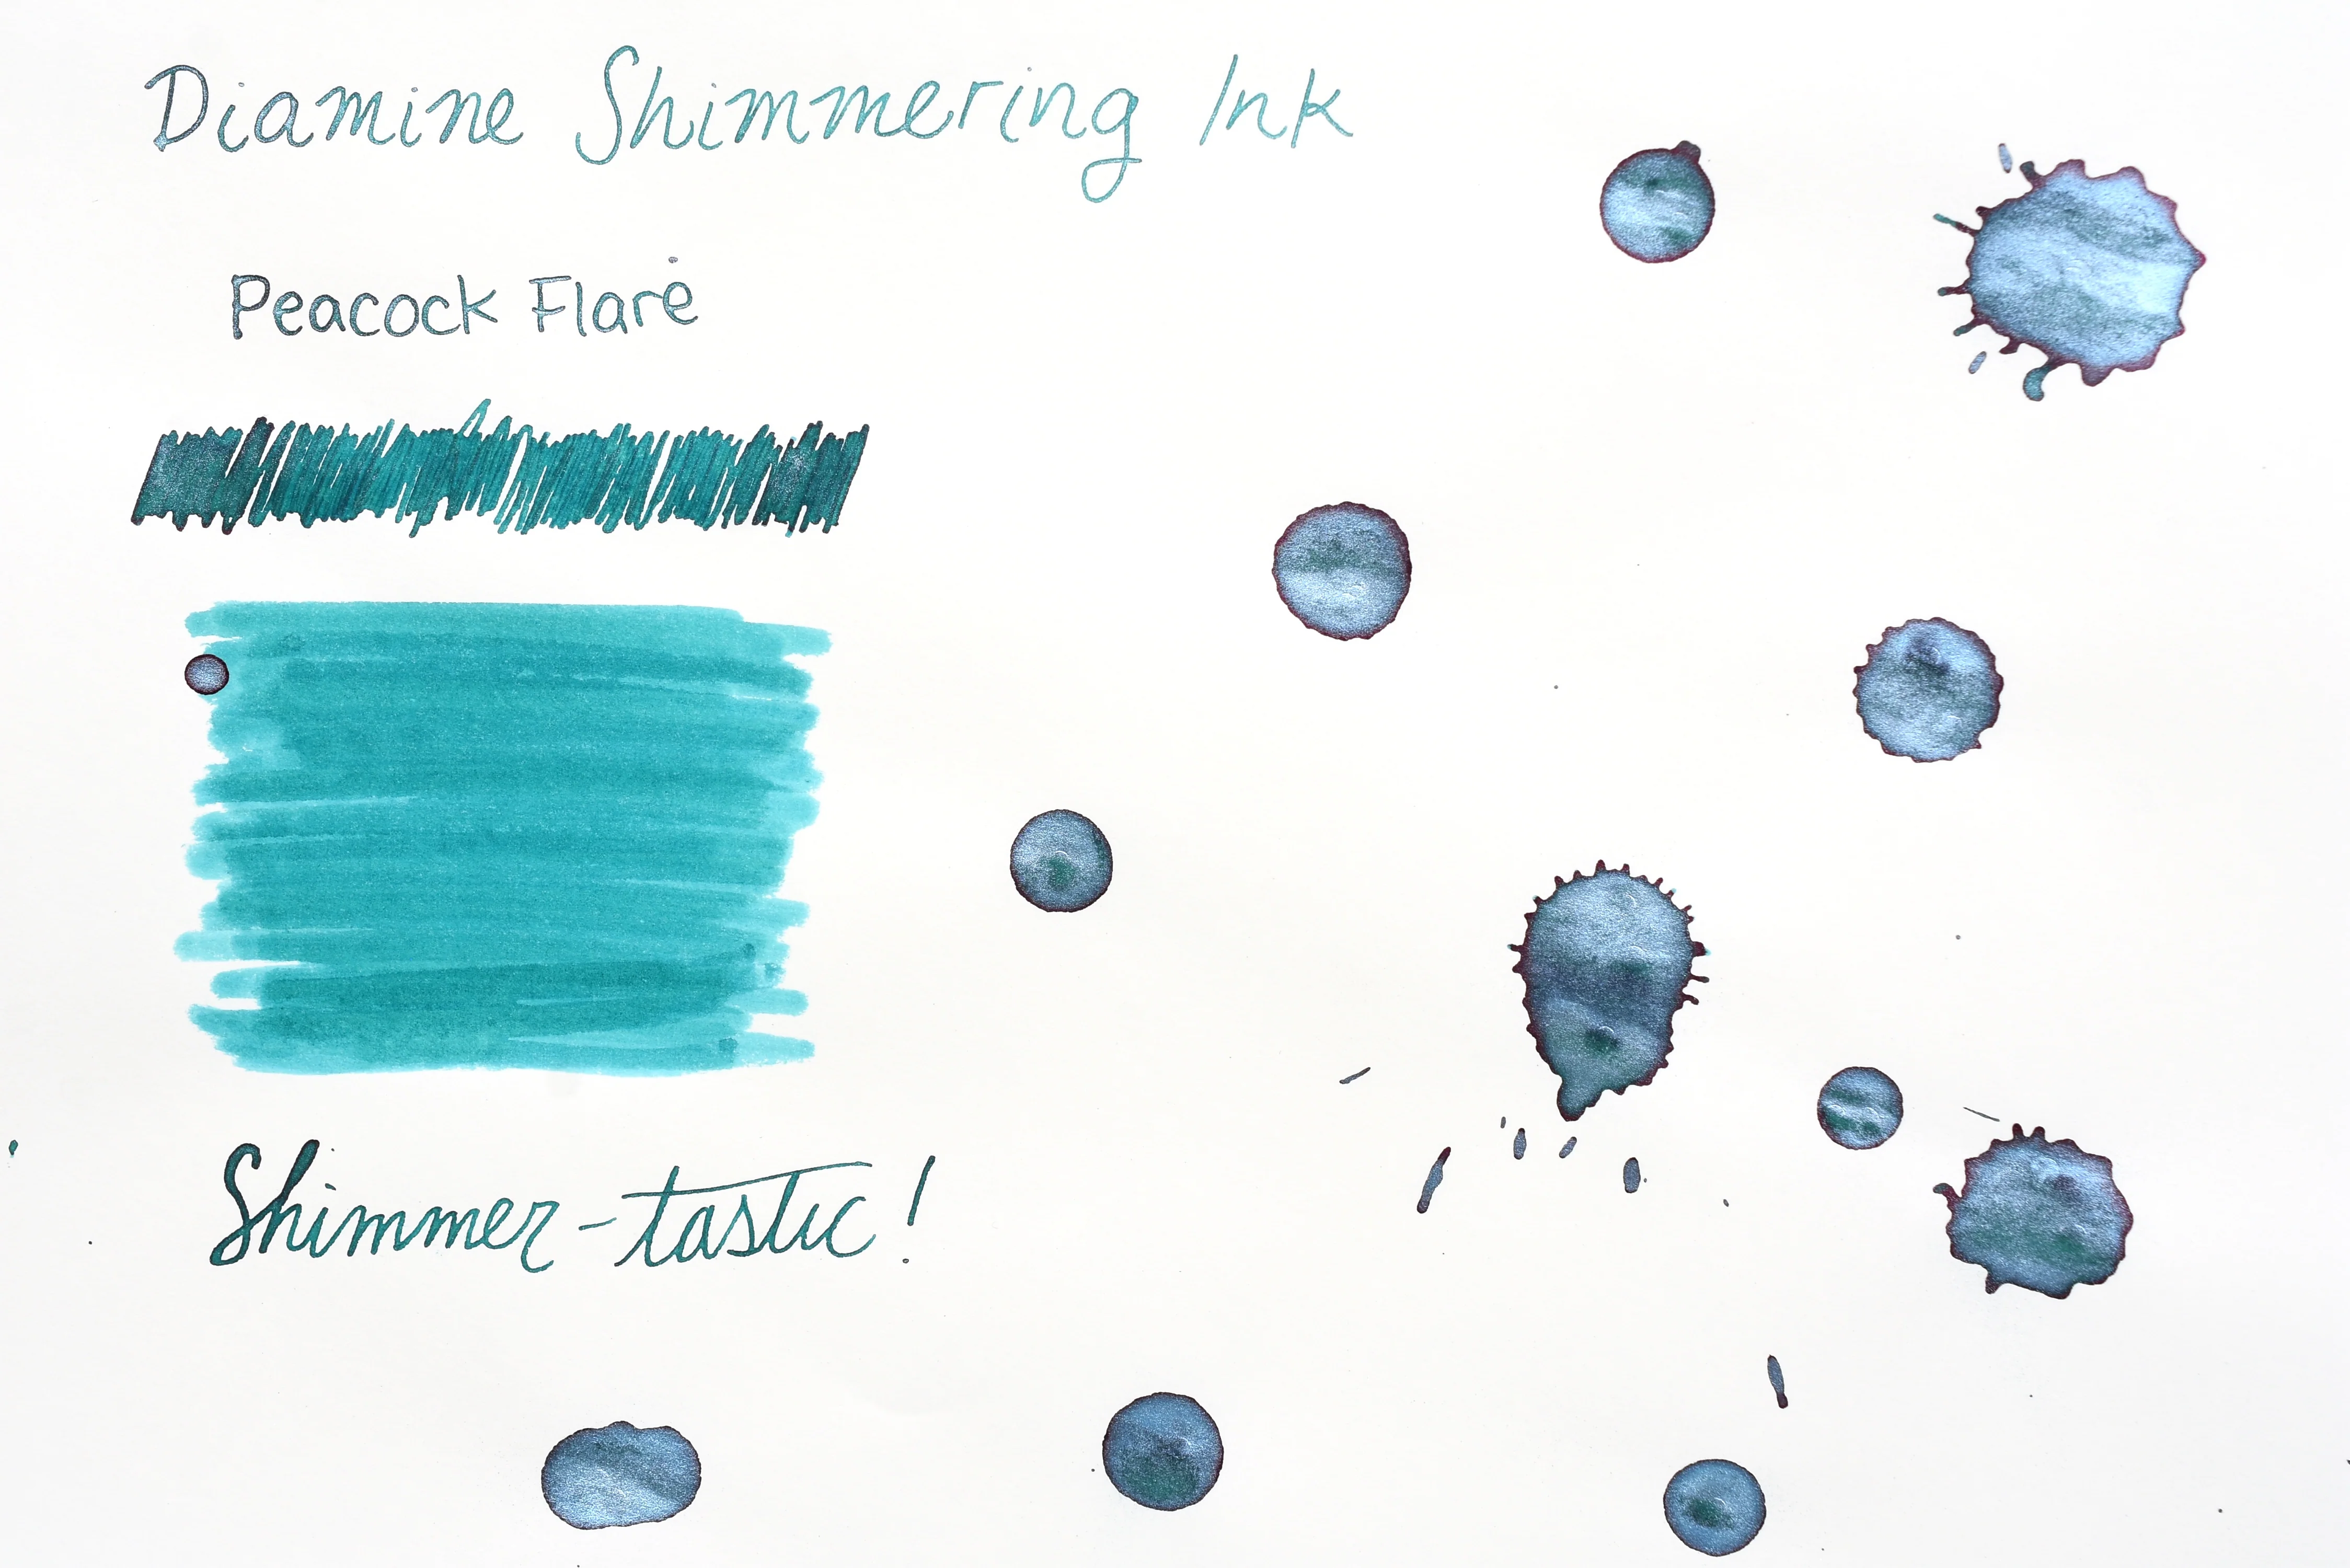 Diamine Shimmering Ink
Peacock Flare
Shimmer-tastic!